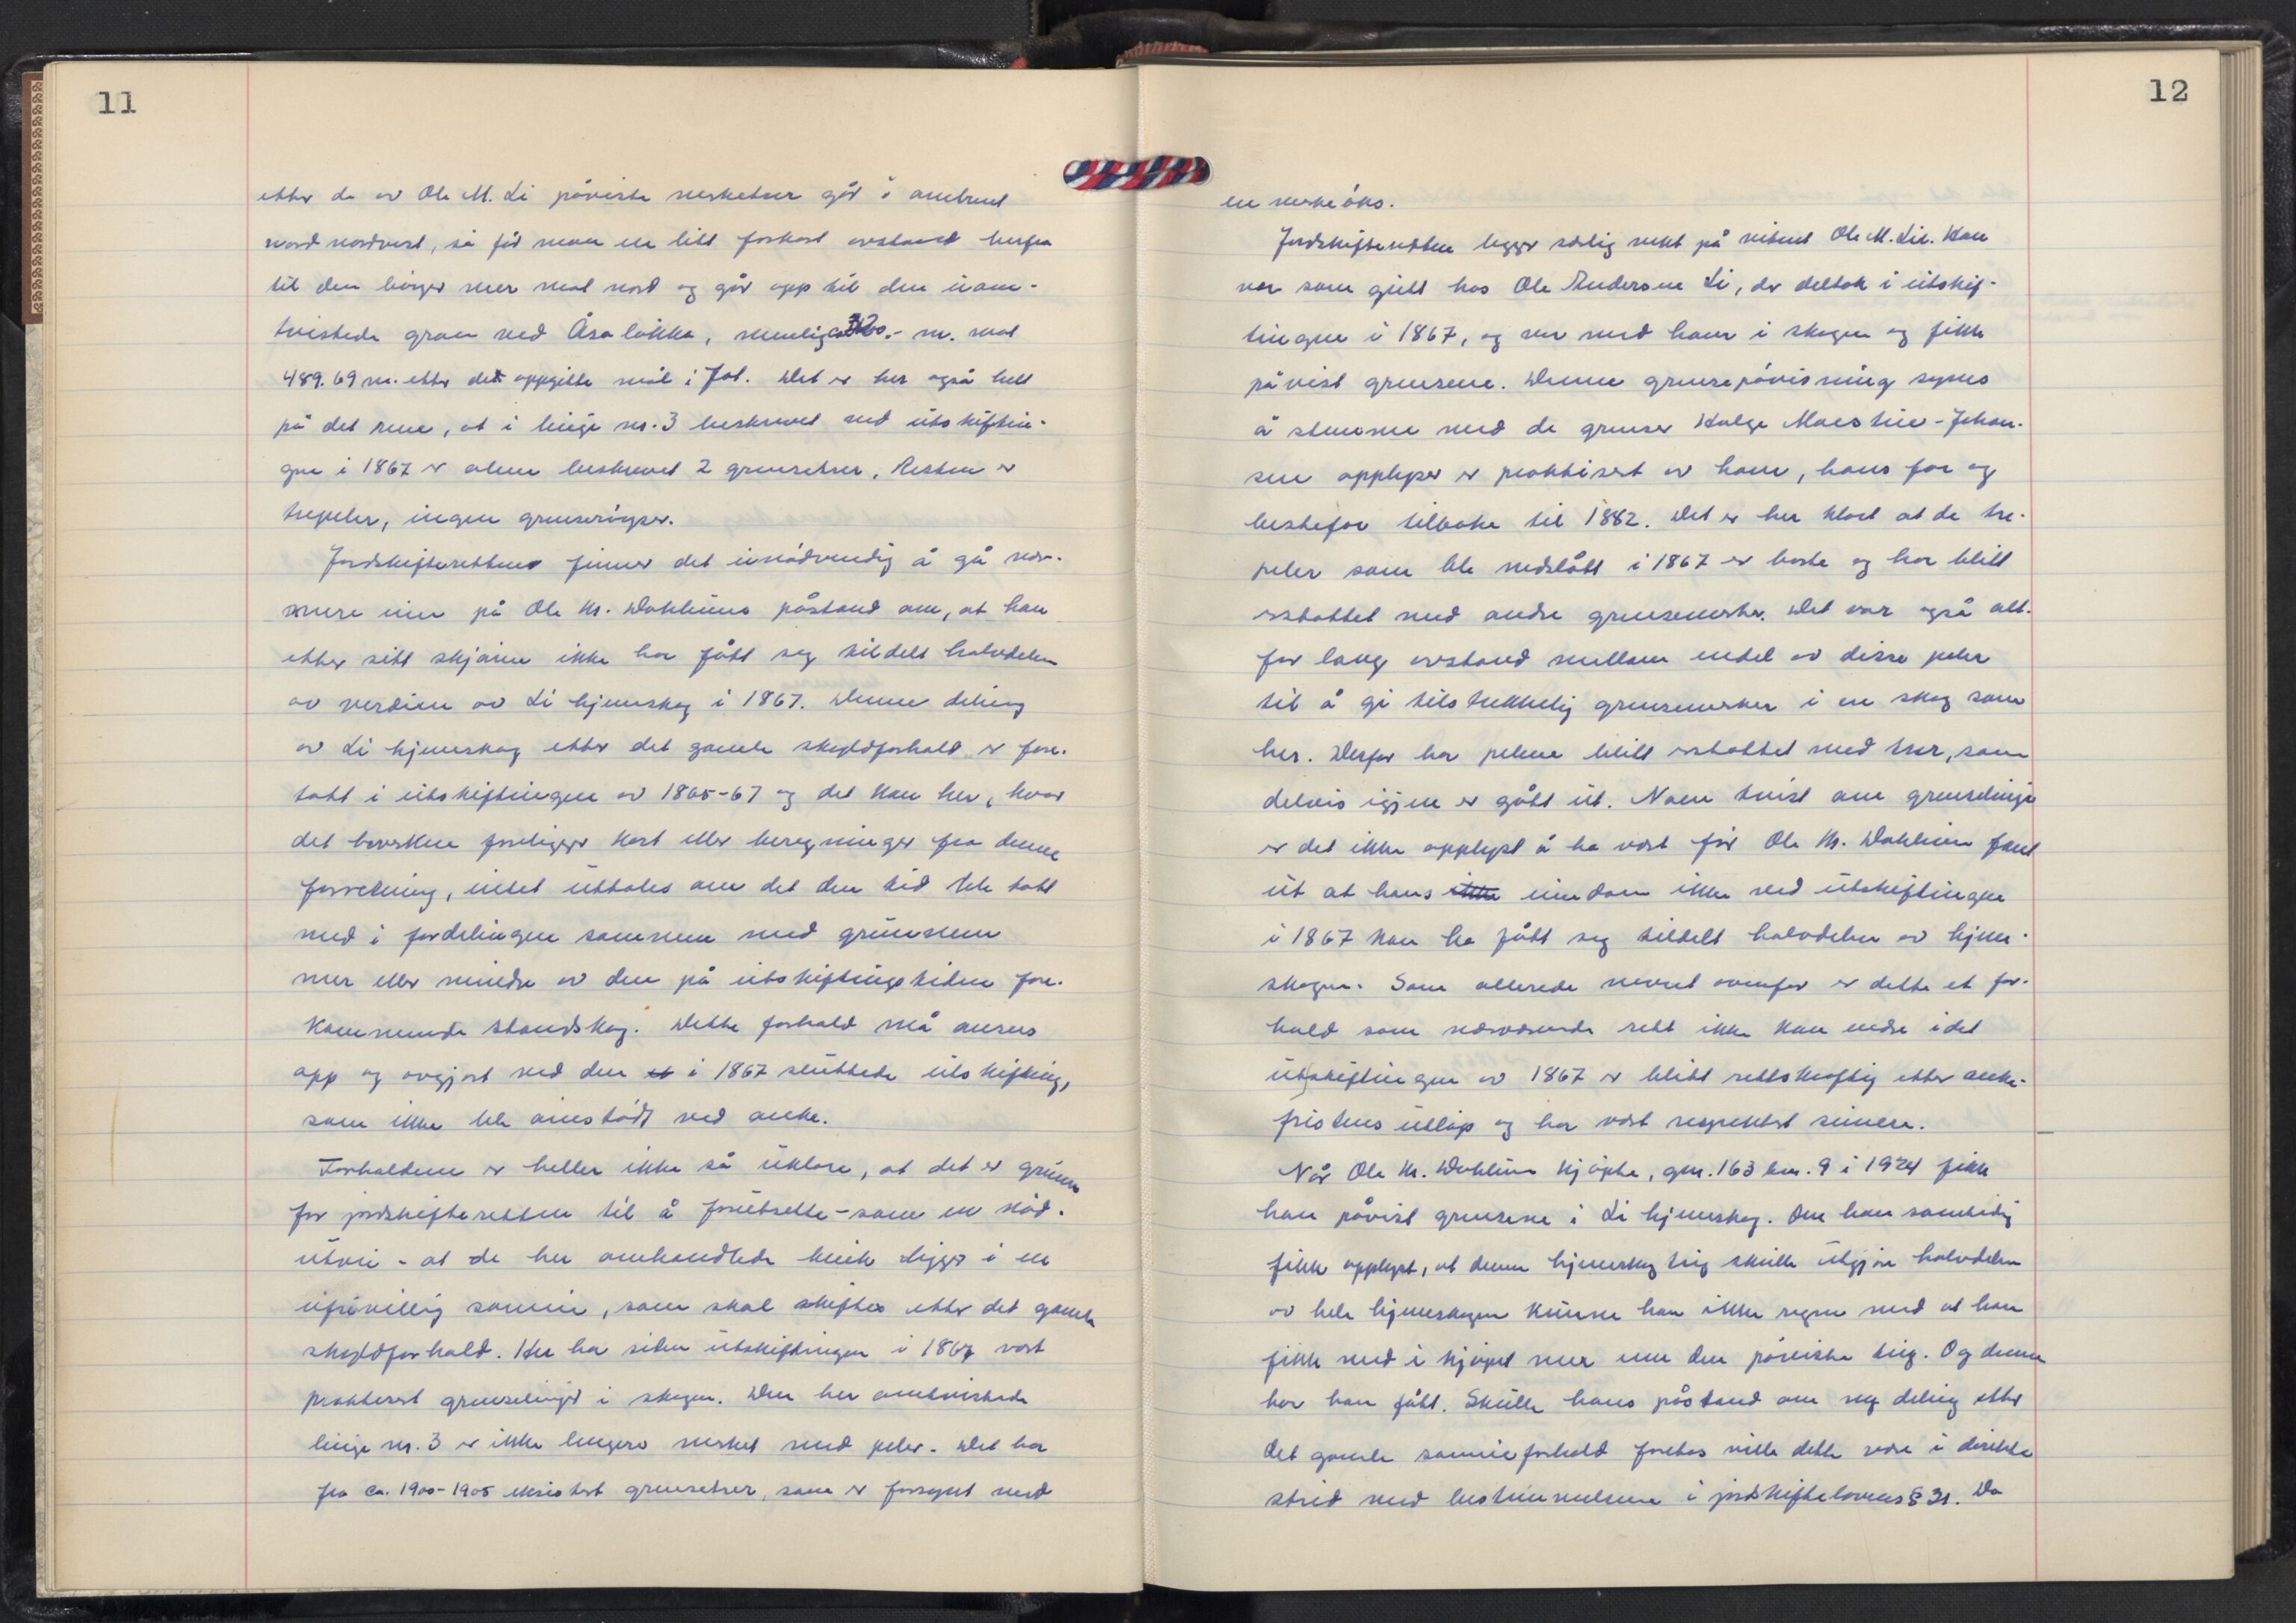 11
etter de av Ole M. Li påviste merketrær går i omtrent
nord nordvest, så får man en litt forkort avstand herfra
til den bøyer mer mot nord og går opp til den uom-
tvistede gran ved Åsaløkka, nemlig ca. m. mot
489.69 m. etter det oppgitte mål i fot. Det er her også helt
på det rene, at i linje nr. 3 beskrevet ved utskiftin-
gen i 1867 er alene beskrevet 2 grensetrær. Resten er
trepeler, ingen grenserøyser.
Jordskifteretten finner det unødvendig å gå nær-
mere inn på Ole Kr. Dahlums påstand om, at han
etter sitt skjønn ikke har fått seg tildelt halvdelen
av verdien av Li hjemskog i 1867. Denne deling
av Li hjemskog etter det gamle skyldforhold er fore-
tatt i utskiftningen av 1865-67 og det kan her, hvor
det hverken foreligger kart eller beregninger fra denne
forretning, intet uttales om det den tid ble tatt
med i fordelingen sammen med grunnen
mer eller mindre av den på utskiftingstiden fore-
kommende standskog. Dette forhold må ansees
opp og avgjort ved den i 1867 sluttede utskifting,
som ikke ble omstødt ved anke.
Forholdene er heller ikke så uklare, at det er grunn
for jordskifteretten til å forutsette - som en nød-
utvei - at de her omhandlede bruk ligger i en
ufrivillig sameie, som skal skiftes etter det gamle
skyldforhold. Her har siden utskiftningen i 1867 vært
praktisert grenselinjer i skogen. Den her omtvistede
linje nr. 3 er ikke lengere merket med peler. Det har
fra ca. 1900-1905 eksistert grensetrær, som er forsynt med
12
en merkeøks.
Jordskifteretten legger særlig vekt på vitnet Ole M. Lie. Han
var som gutt hos Ole Andersen Li, der deltok i utskif-
tingen i 1867, og var med ham i skogen og fikk
påvist grensene. Denne grensepåvisning synes
å stemme med de grenser Helge Moestue-Johan-
sen opplyser er praktisert av ham, hans far og
bestefar tilbake til 1882. Det er her klart at de tre-
peler som ble nedslått i 1867 er borte og har blitt
erstattet med andre grensemerker. Det var også alt-
for lang avstand mellom endel av disse peler
til å gi tilstrekkelig grensemerker i en skog som
her. Derfor har pelene blitt erstattet med trær, som
delvis igjen er gått ut. Noen tvist om grenselinje
er det ikke opplyst å ha vært før Ole Kr. Dahlum fant
ut at hans ikke eiendom ikke ved utskiftingen
i 1867 kan ha fått seg tildelt halvdelen av hjem-
skogen. Som allerede nevnt ovenfor er dette et for-
hold som nærværende rett ikke kan endre idet
utskiftingen av 1867 er blitt rettskraftig etter anke-
fristens utløp og har vært respektert siden.
Når Ole Kr. Dahlum kjøpte, gnr. 163 bnr. 9 i 1924 fikk
han påvist grensene i Li hjemskog. Om han samtidig
fikk opplyst, at denne hjemskog teig skulle utgjøre halvdelen
av hele hjemskogen kunne han ikke regne med at han
fikk med i kjøpet mer enn den påviste teig. Og denne
har han fått. Skulle hans påstand om ny deling etter
det gamle sameieforhold foretas ville dette være i direkte
strid med bestemmelsene i jordskiftelovens § 31. Da